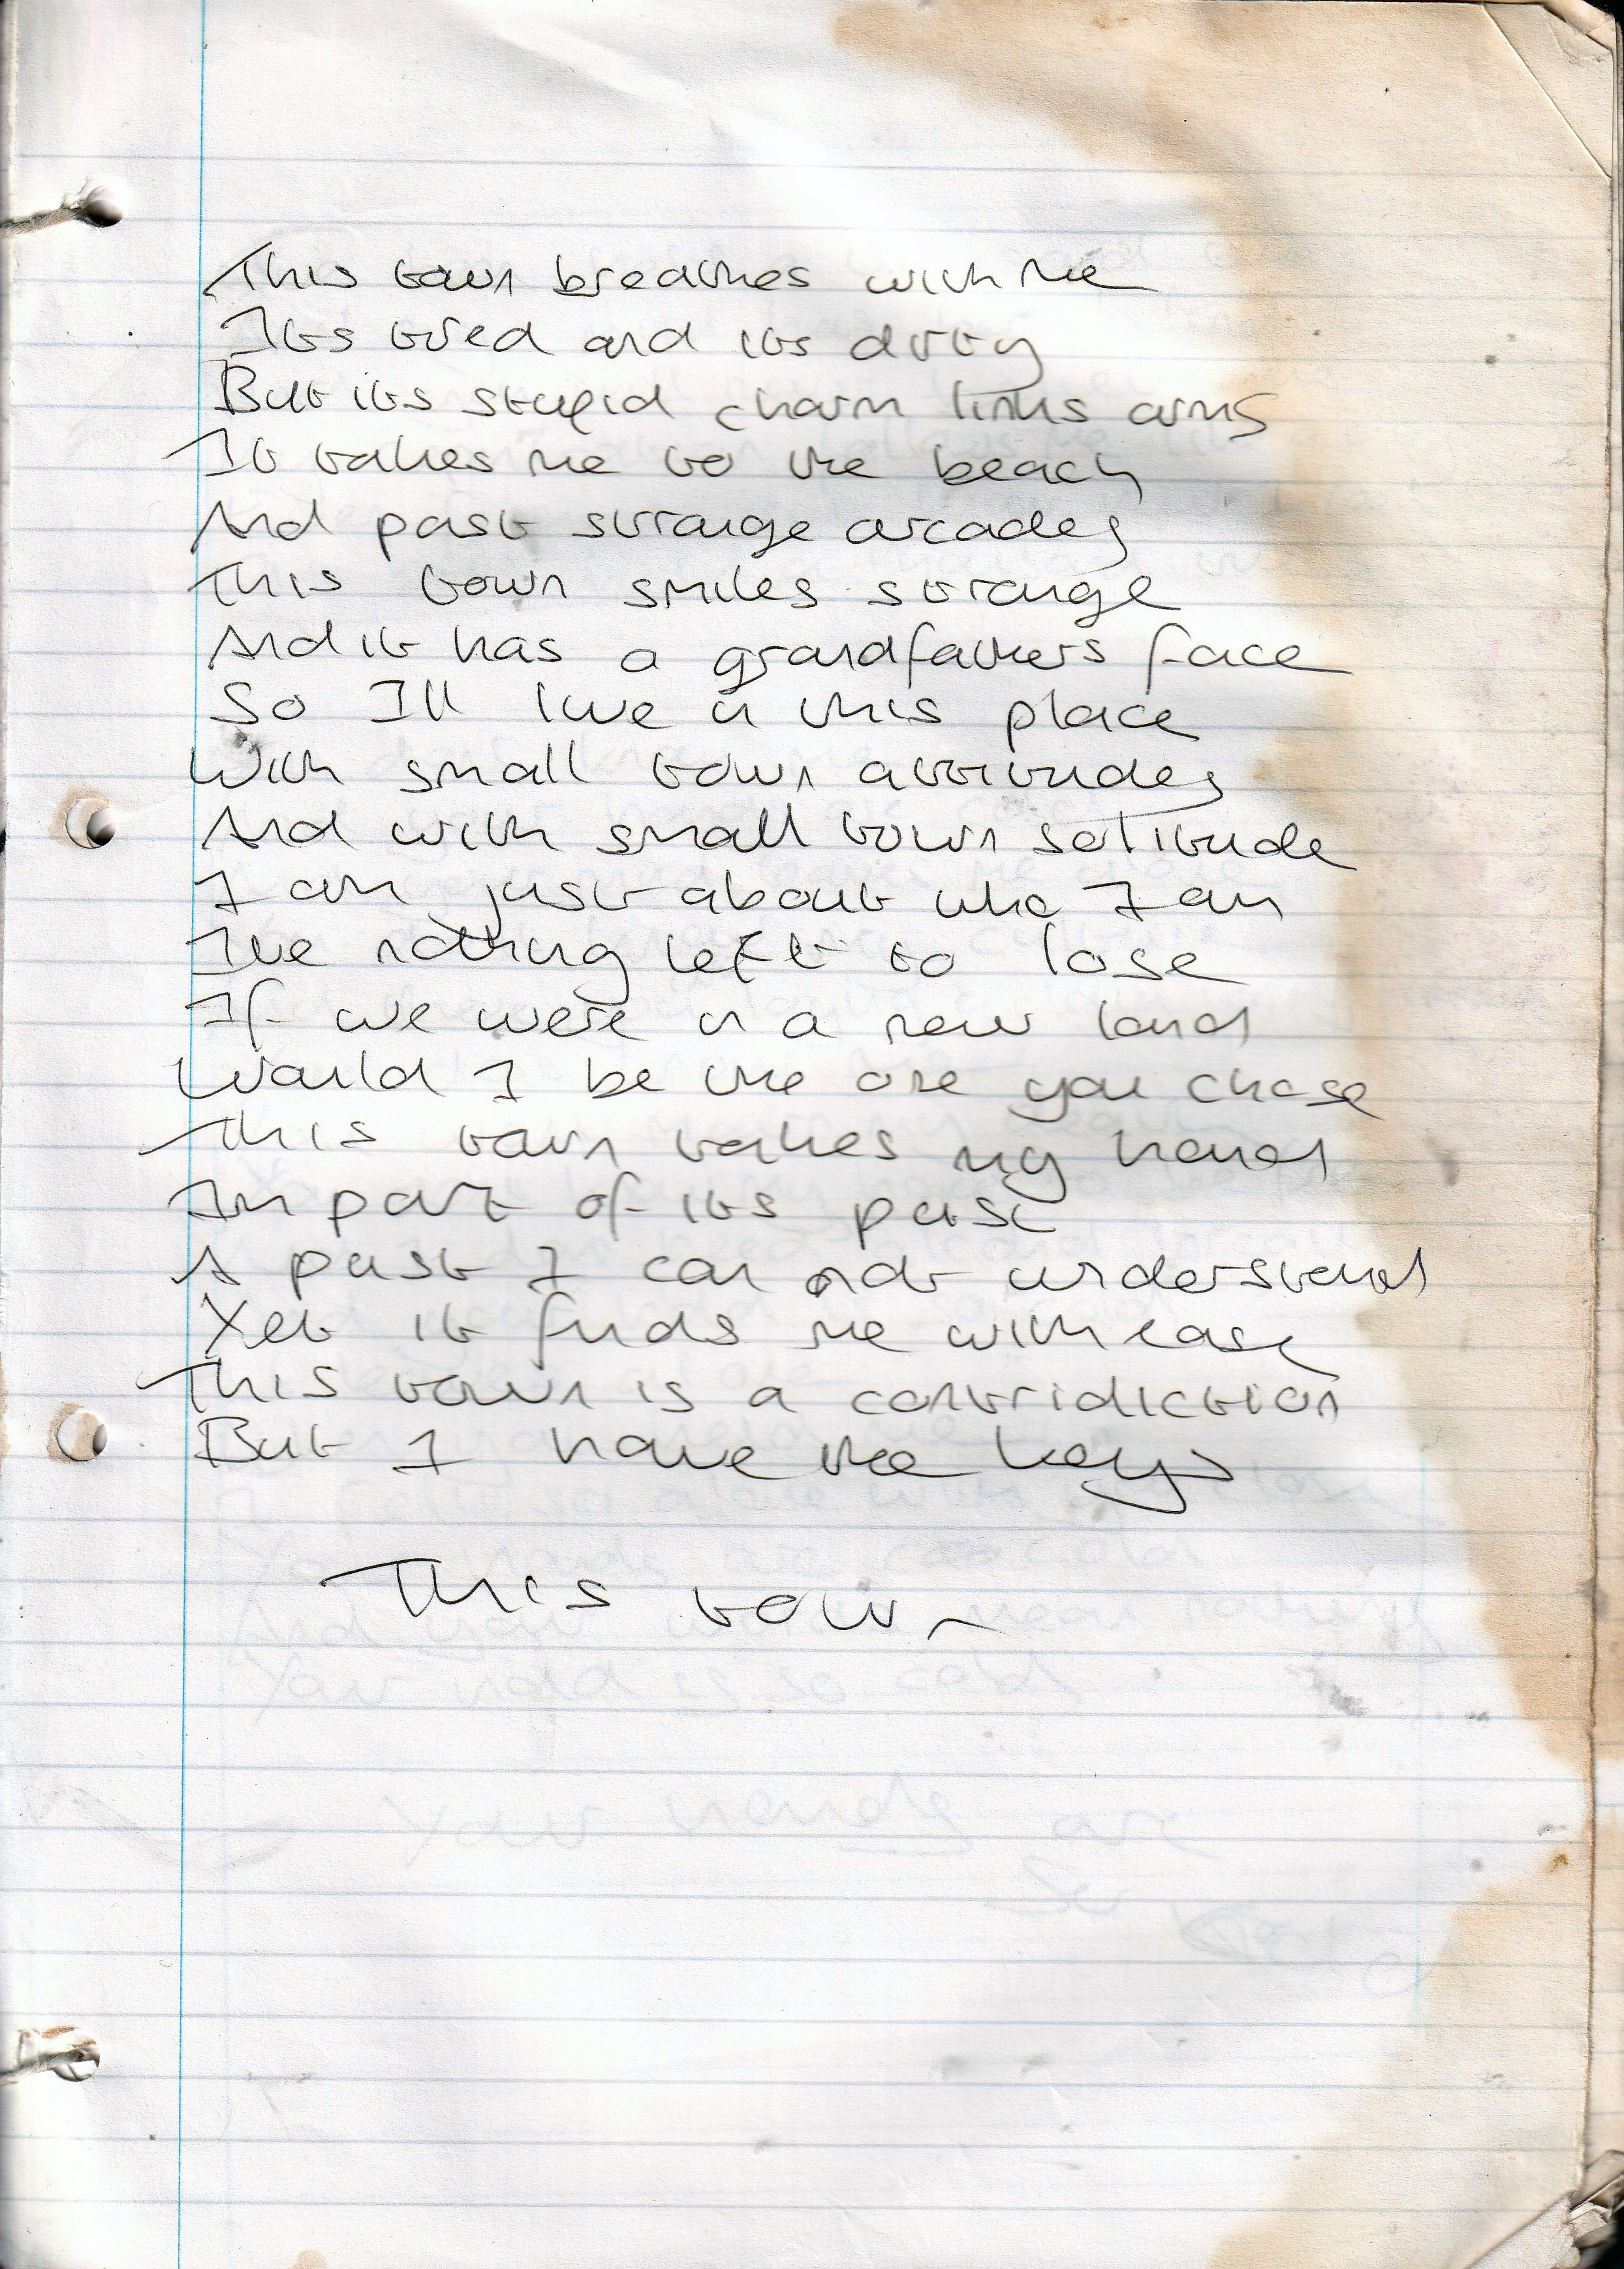 This town breathes with me
Its tired and its dirty
But its stupid charm links arms
It takes me to the beach
And past strange arcades
This town smiles strange
And it has a grandfathers face
So Ill live in this place
With small town attitudes
And with small town solitude
I am just about who I am
Ive nothing left to lose
If we were in a new land
Would I be the one you chose
This town takes my hand
Im part of its past
A past I can not understand
Yet it finds me with ease
This town is a contridiction
But I have the keys
This town